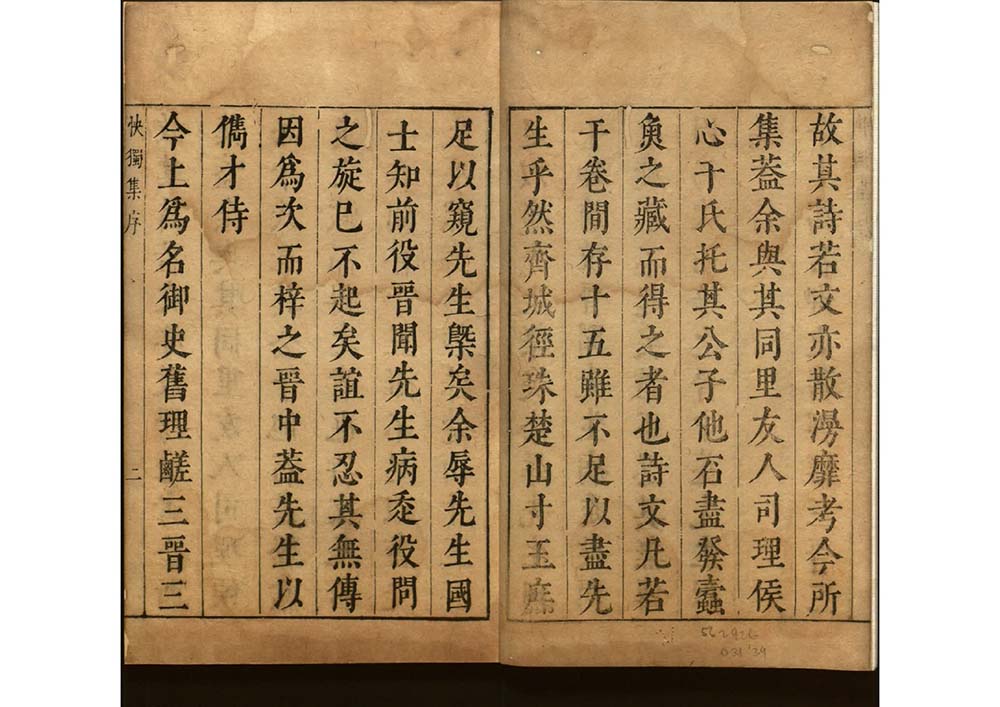 故其詩若文亦散漫靡考今所
集葢余與其同里友人司理侯
心十氏托其公子他石盡發蠹
奐之藏而得之者也詩文凡若
干卷間存十五雖不足以盡先
生乎然齊城徑珠楚山寸玉庶
562926
O 31 '39
足以窺先生槩矣余辱先生國
士知前役晉聞先生病忩役問
之旋已不起矣誼不忍其無傳
因爲次而梓之晉中葢先生以
儁才侍
今上爲名御史舊理鹺三晉三
快獨集序
二